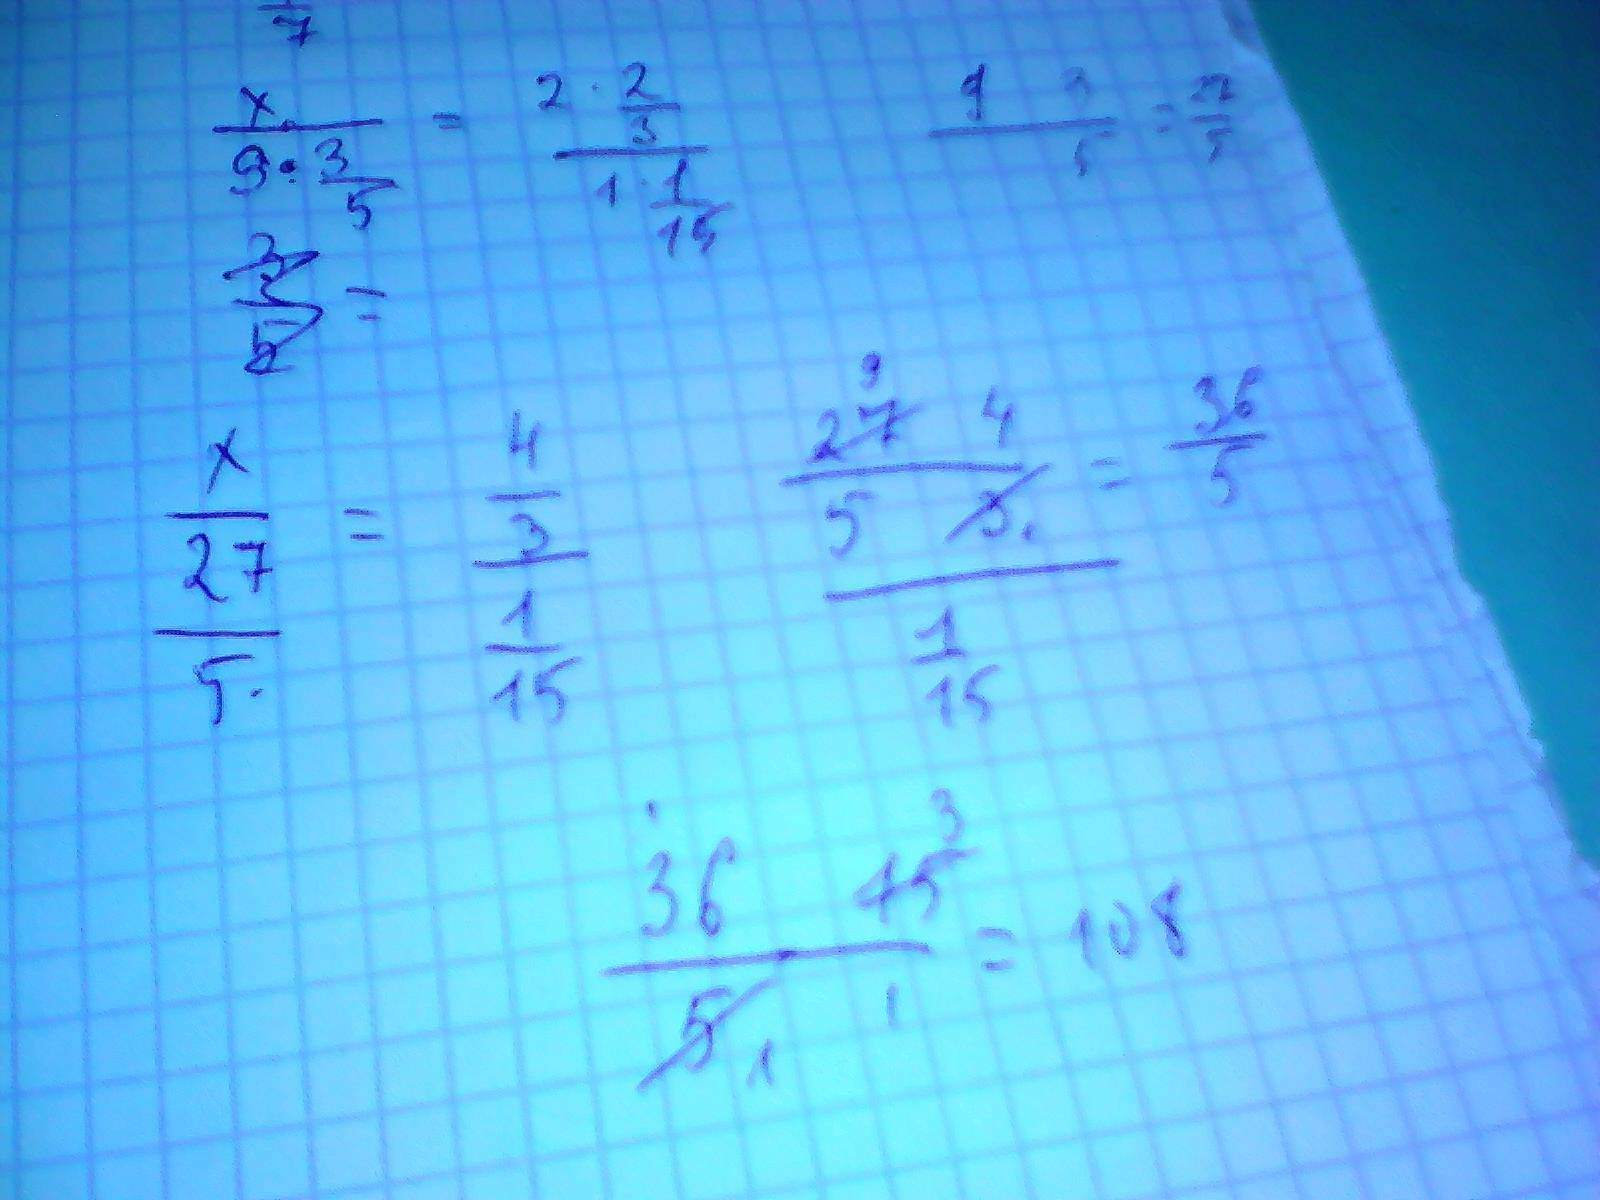 7
x / (9 · 3/5) = (2 · 2/3) / (1 · 1/15)
9 3 / 5 = 27/5
=
x / (27/5) = (4/3) / (1/15)
9
(27 4 / 5 3) / (1/15) = 36/5
3
36 45 / 5 1 = 108
1